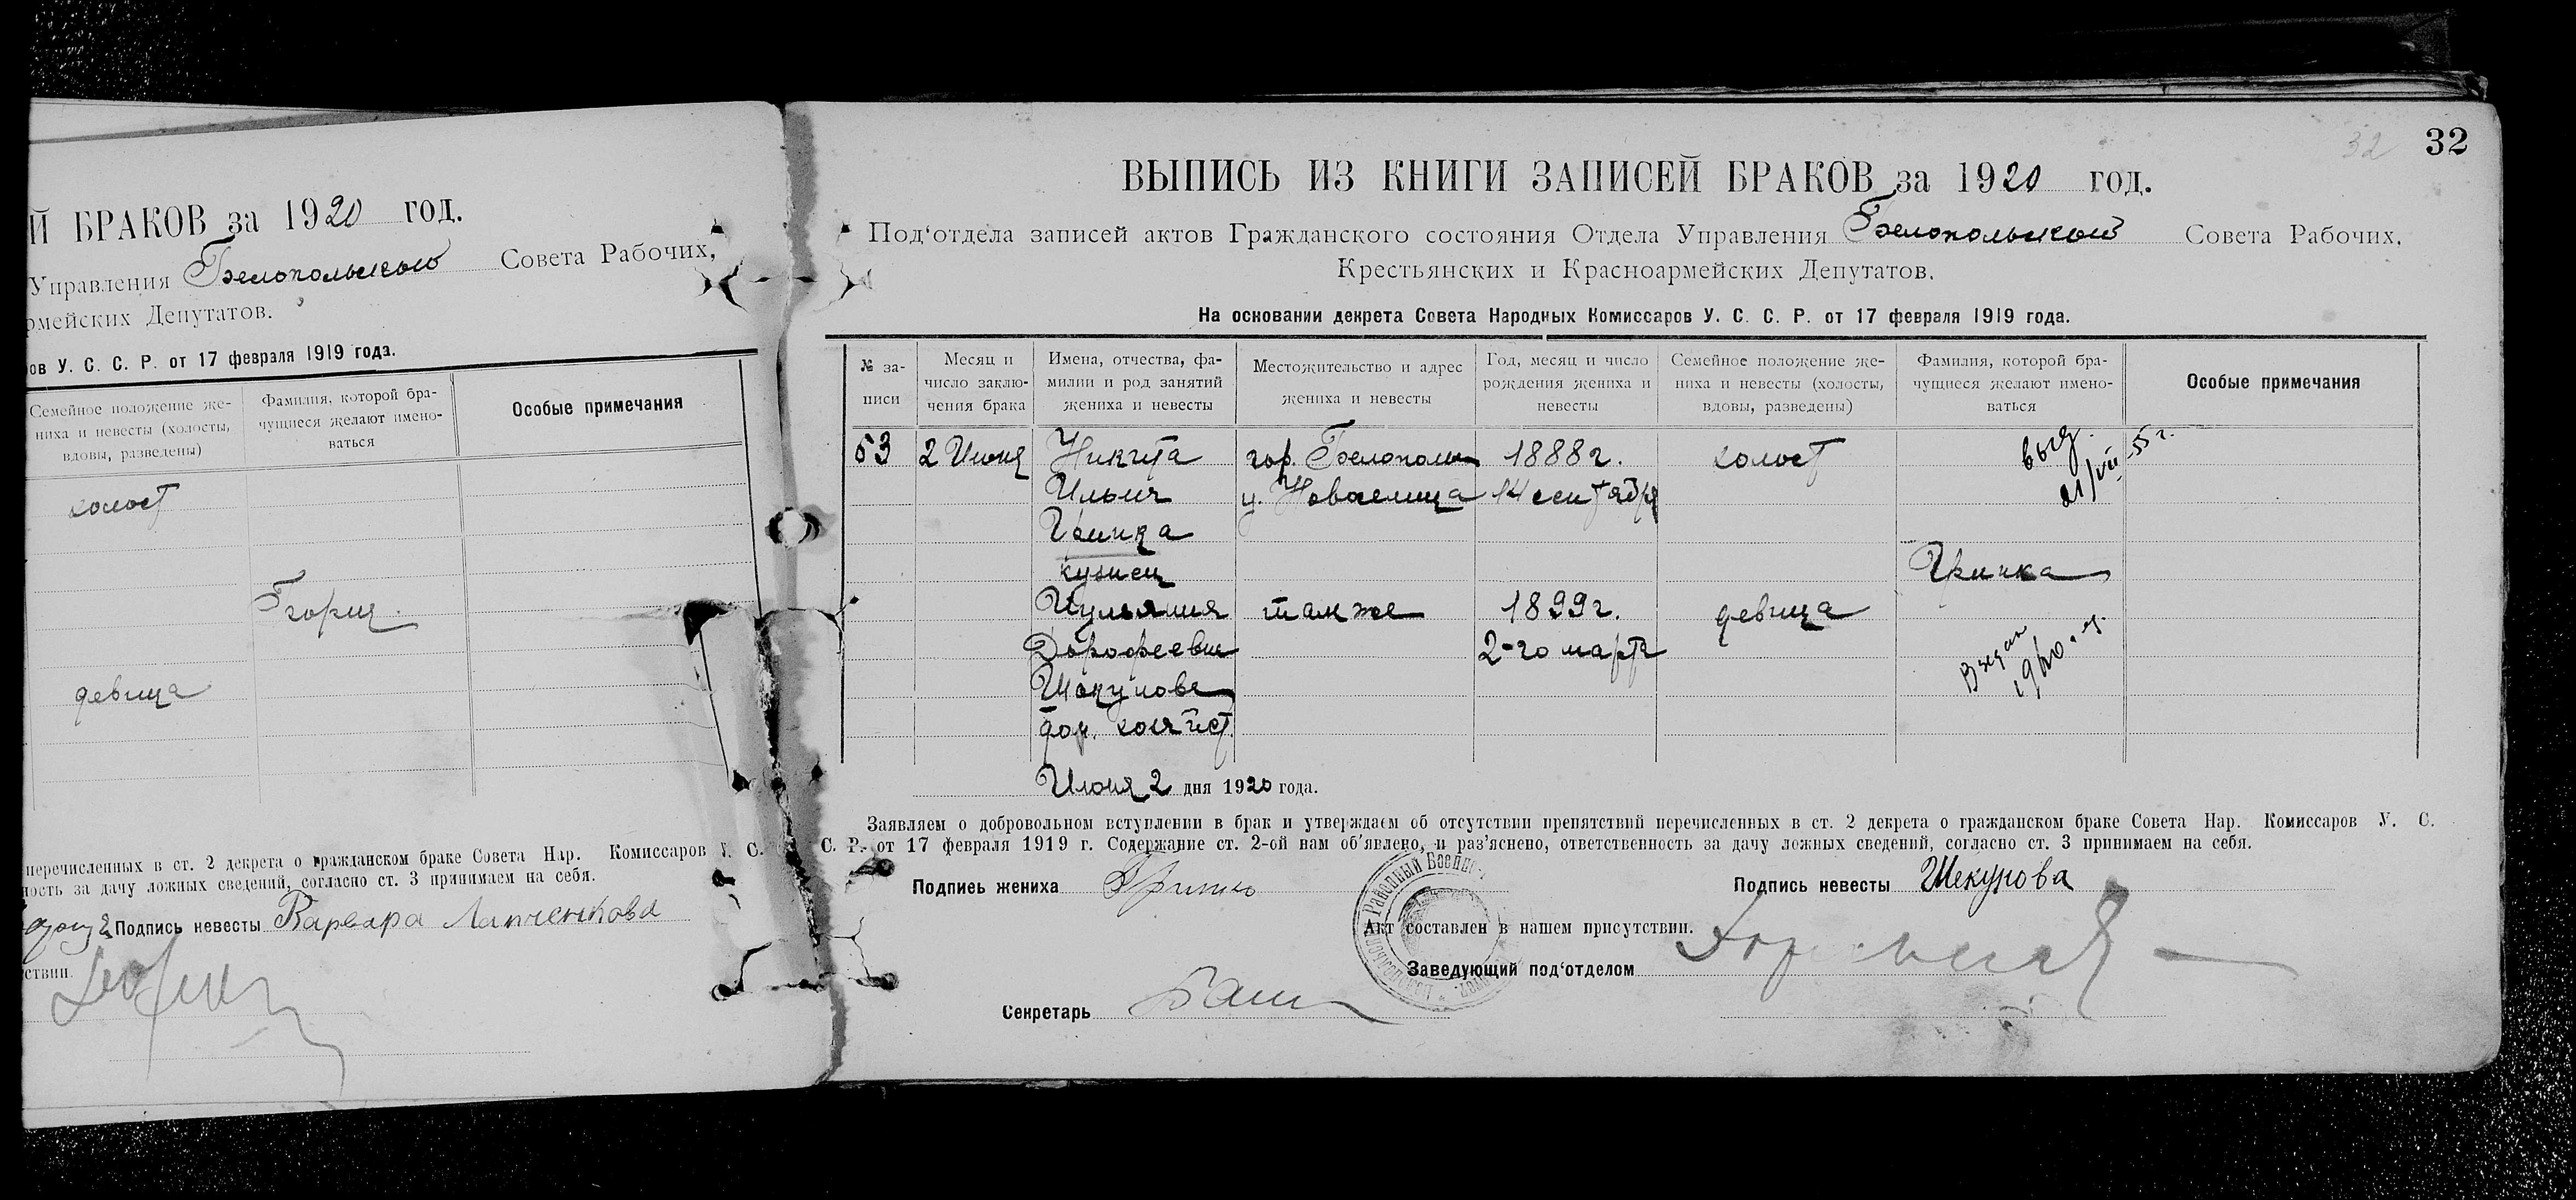 Й БРАКОВ за 1920 год.
Управления Белопольского Совета Рабочих,
рмейских Депутатов.
ов У. С. С. Р. от 17 февраля 1919 года.
Семейное положение же-
ниха и невесты (холосты,
вдовы, разведены)
Фамилия, которой бра-
чущиеся желают имено-
ваться
Особые примечания
холост
девица
перечисленных в ст. 2 декрета о гражданском браке Совета Нар. Комиссаров У. С.
ность за дачу ложных сведений, согласно ст. 3 принимаем на себя.
Подпись невесты Варвара
ствии.
32
32
ВЫПИСЬ ИЗ КНИГИ ЗАПИСЕЙ БРАКОВ за 1920 год.
Под'отдела записей актов Гражданского состояния Отдела Управления Белопольского Совета Рабочих,
Крестьянских и Красноармейских Депутатов.
На основании декрета Совета Народных Комиссаров У. С. С. Р. от 17 февраля 1919 года.
№ за-
писи
Месяц и
число заклю-
чения брака
Имена, отчества, фа-
милии и род занятий
жениха и невесты
Местожительство и адрес
жениха и невесты
Год, месяц и число
рождения жениха и
невесты
Семейное положение же-
ниха и невесты (холосты,
вдовы, разведены)
Фамилия, которой бра-
чущиеся желают имено-
ваться
Особые примечания
53 2 Июня Никита гор. Белополье 1888г. холост
Ильич 14 сентября
Гринка
кузнец
Гринка
выд.
21/VII-55 г.
Иульяния там же 1899г. девица
Дорофеевна 2-го марта
Шекунова
дом. хозяйст.
Июня 2 дня 1920 года.
Заявляем о добровольном вступлении в брак и утверждаем об отсутствии препятствий перечисленных в ст. 2 декрета о гражданском браке Совета Нар. Комиссаров У. С.
С. Р. от 17 февраля 1919 г. Содержание ст. 2-ой нам об'явлено, и раз'яснено, ответственность за дачу ложных сведений, согласно ст. 3 принимаем на себя.
Подпись жениха
Подпись невесты Шекунова
Акт составлен в нашем присутствии.
Заведующий под'отделом
Секретарь